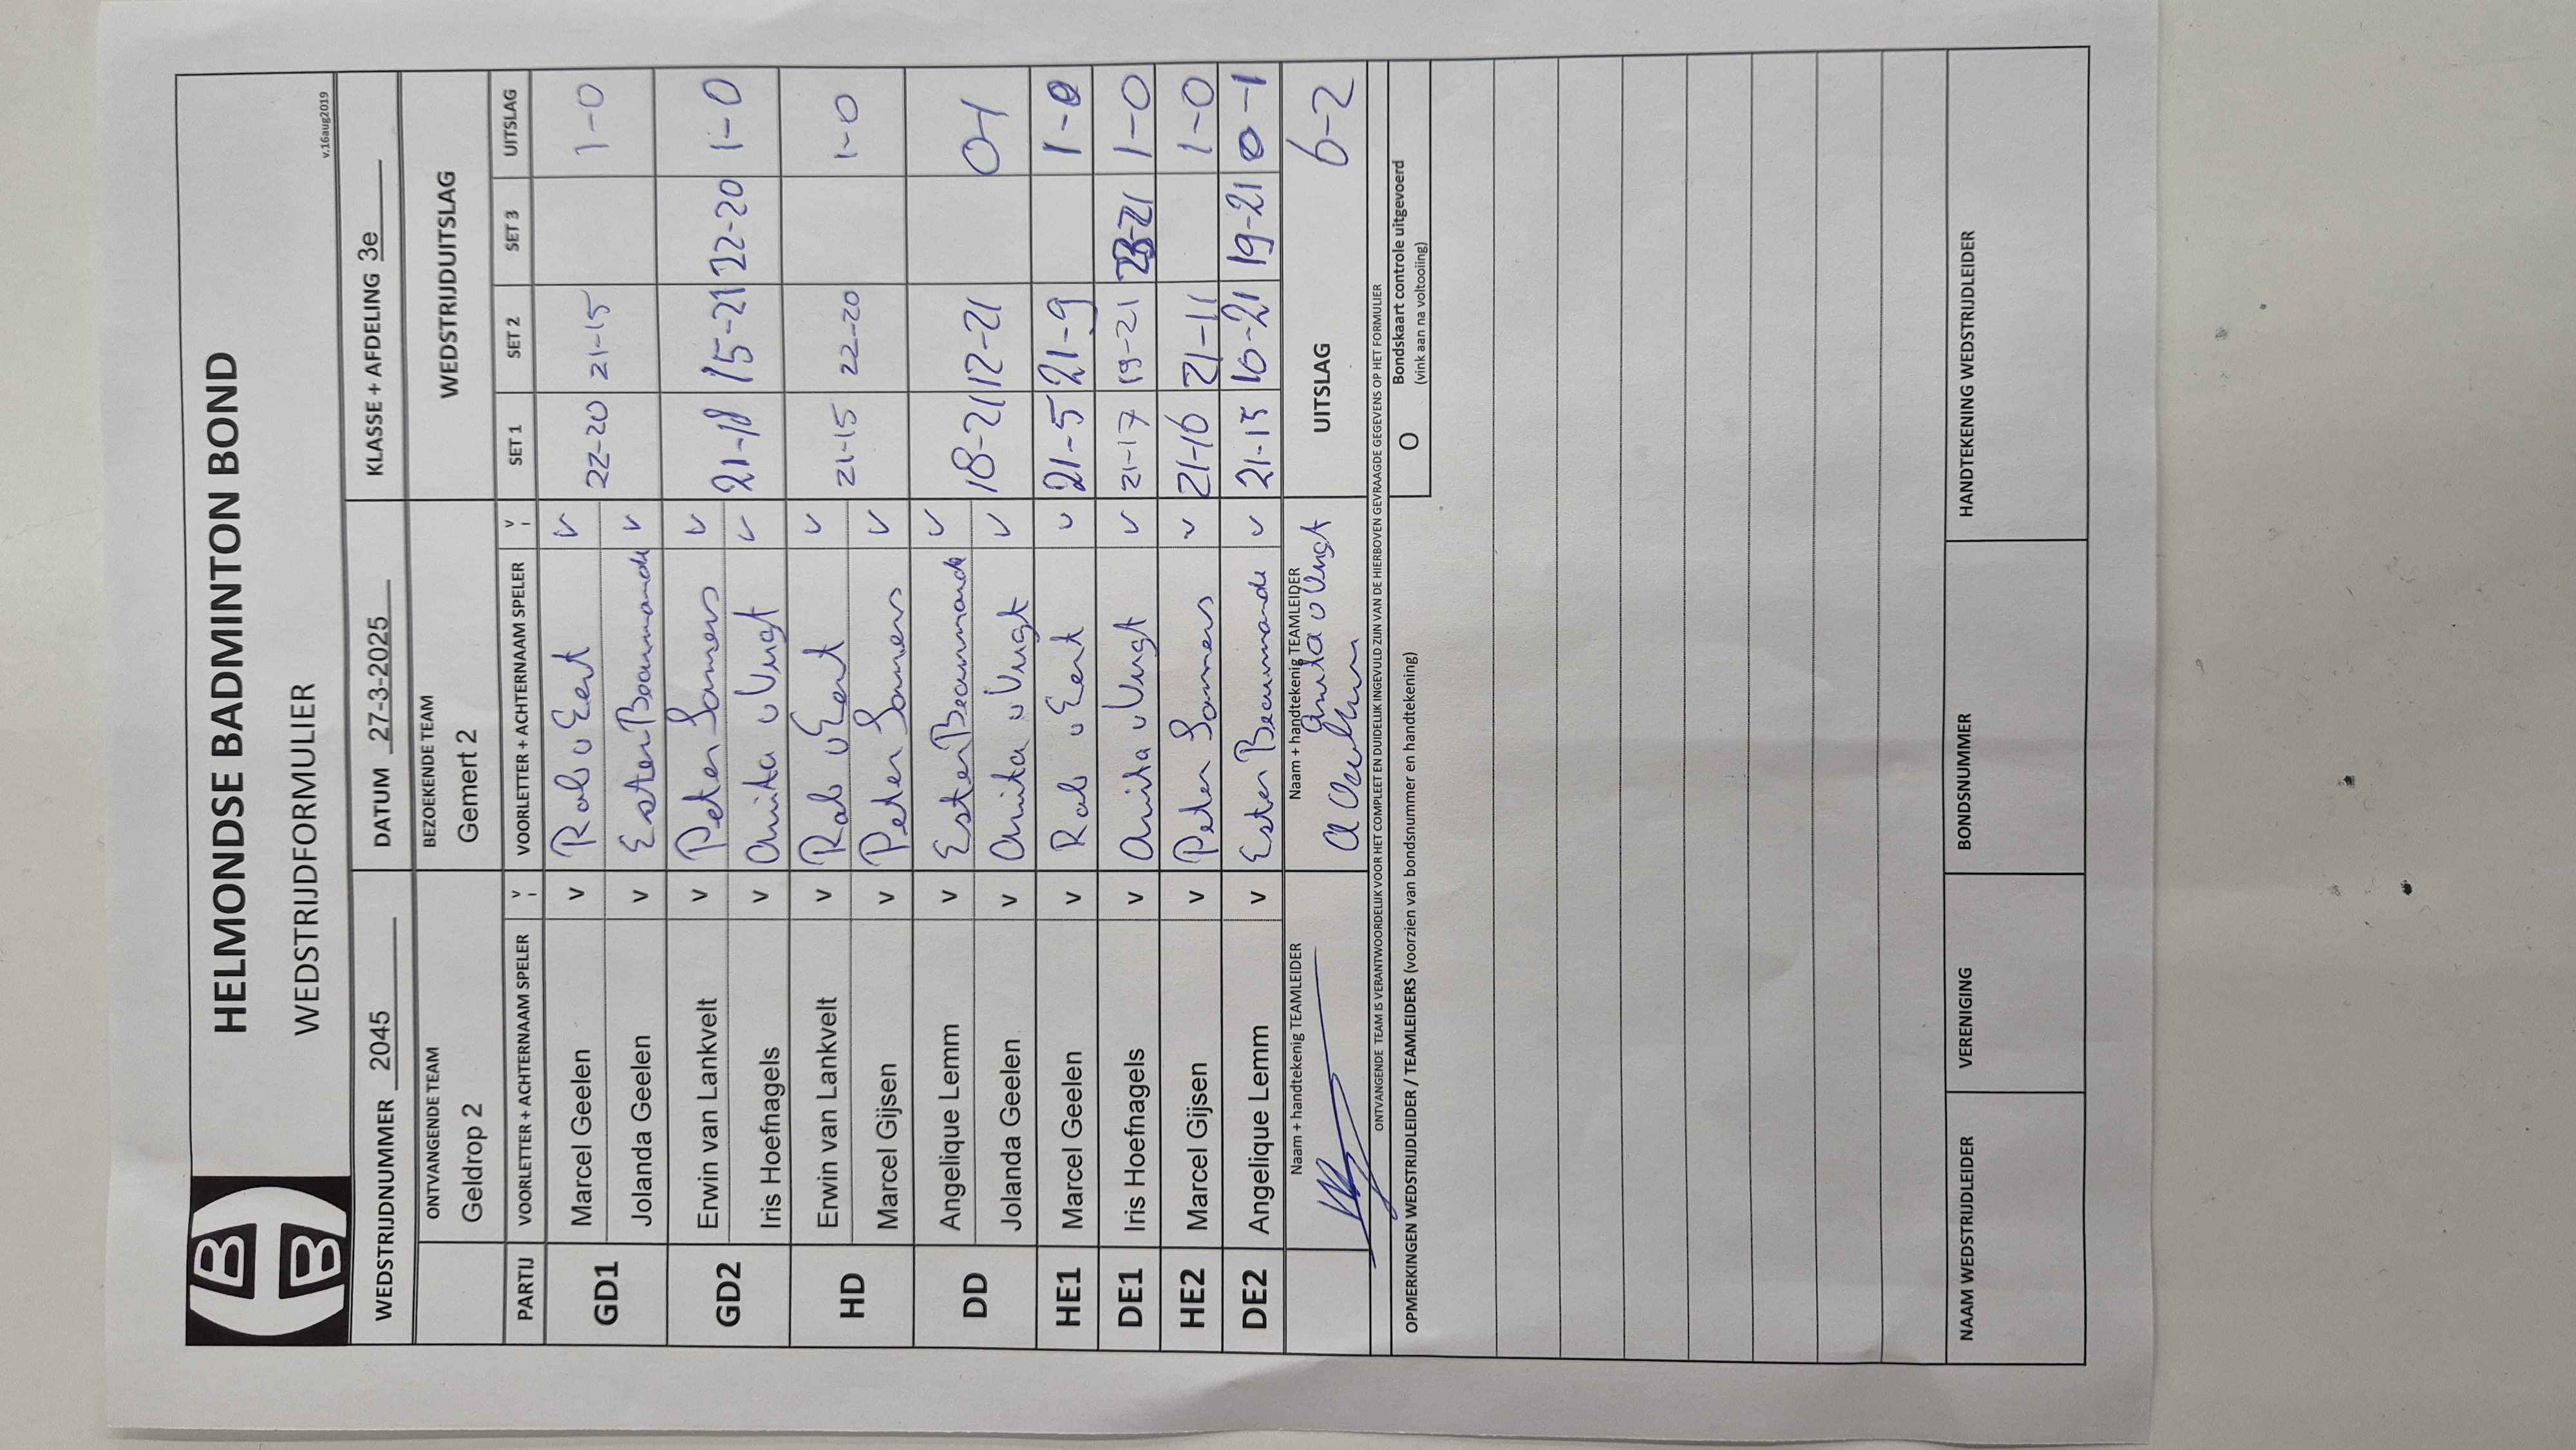 HELMONDSE BADMINTON BOND
WEDSTRIJDFORMULIER
v.16aug2019
WEDSTRIJDNUMMER 2045 DATUM 27-3-2025 KLASSE + AFDELING 3e
ONTVANGENDE TEAM BEZOEKENDE TEAM WEDSTRIJDUITSLAG
Geldrop 2 Gemert 2
PARTIJ VOORLETTER + ACHTERNAAM SPELER V VOORLETTER + ACHTERNAAM SPELER V SET 1 SET 2 SET 3 UITSLAG
GD1 Marcel Geelen v Rob v Eert v 22-20 21-15 1-0
Jolanda Geelen v Ester v
GD2 Erwin van Lankvelt v Peter Somers v 21-18 15-21 22-20 1-0
Iris Hoefnagels v Anita v Vugt v
HD Erwin van Lankvelt v Rob v Eert v 21-15 22-20 1-0
Marcel Gijsen v Peter Somers v
DD Angelique Lemm v Ester v 18-21 12-21 0-1
Jolanda Geelen v Anita v Vugt v
HE1 Marcel Geelen v Rob v Eert v 21-5 21-9 1-0
DE1 Iris Hoefnagels v Anita v Vugt v 21-17 19-21 23-21 1-0
HE2 Marcel Gijsen v Peter Somers v 21-16 21-11 1-0
DE2 Angelique Lemm v Ester v 21-15 16-21 19-21 0-1
Naam + handtekenig TEAMLEIDER Naam + handtekenig TEAMLEIDER
Anita v Vugt UITSLAG 6-2
ONTVANGENDE TEAM IS VERANTWOORDELIJK VOOR HET COMPLEET EN DUIDELIJK INGEVULD ZIJN VAN DE HIERBOVEN GEVRAAGDE GEGEVENS OP HET FORMULIER
OPMERKINGEN WEDSTRIJDLEIDER / TEAMLEIDERS (voorzien van bondsnummer en handtekening) O Bondskaart controle uitgevoerd
(vink aan na voltooiing)
NAAM WEDSTRIJDLEIDER VERENIGING BONDSNUMMER HANDTEKENING WEDSTRIJDLEIDER